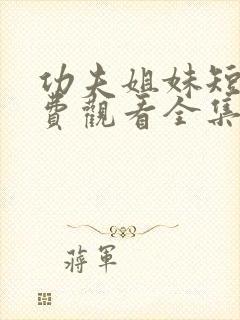 功夫姐妹短
費觀看全集
蔣軍